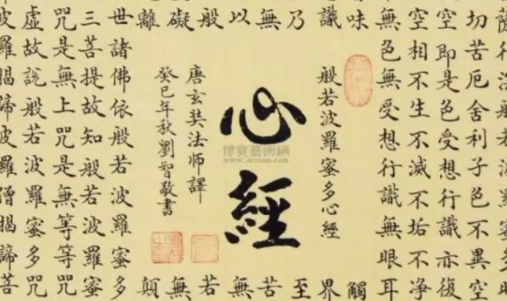 切苦厄舍利子色不異空
空即是色受想行識亦復
空相不生不滅不垢不淨
無色無受想行識無眼耳
味
觸
識
界
乃
至
無
無
以
若
般
無
礙
無
離
顛
般若波羅蜜多心經
心經
唐玄奘法師譯
癸巳年秋劉智敬書
世諸佛依般若波羅蜜多
三菩提故知般若波羅蜜多
咒是無上咒是無等等咒
虛故說般若波羅蜜多咒
波羅揭諦波羅僧揭諦菩